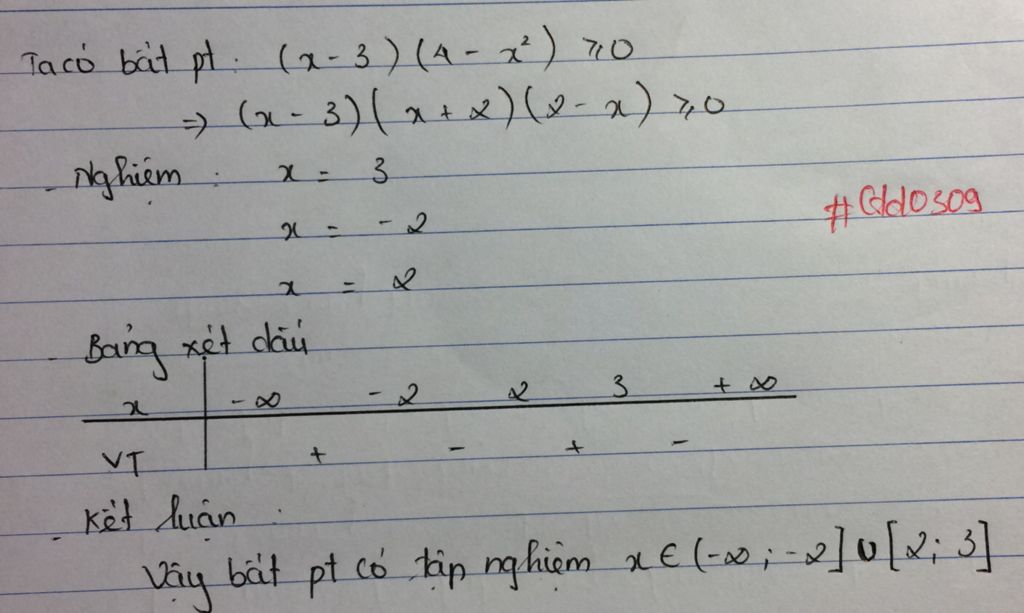 Ta có bất pt: (x - 3)(4 - x²) ⩾ 0
=> (x - 3)(x + 2)(2 - x) ⩾ 0
- Nghiệm : x = 3
x = -2
#Gdd0309
x = 2
- Bảng xét dấu
x -∞ -2 2 3 +∞
VT + - + -
- Kết luận :
Vậy bất pt có tập nghiệm x ∈ (-∞ ; -2] ∪ [2; 3]